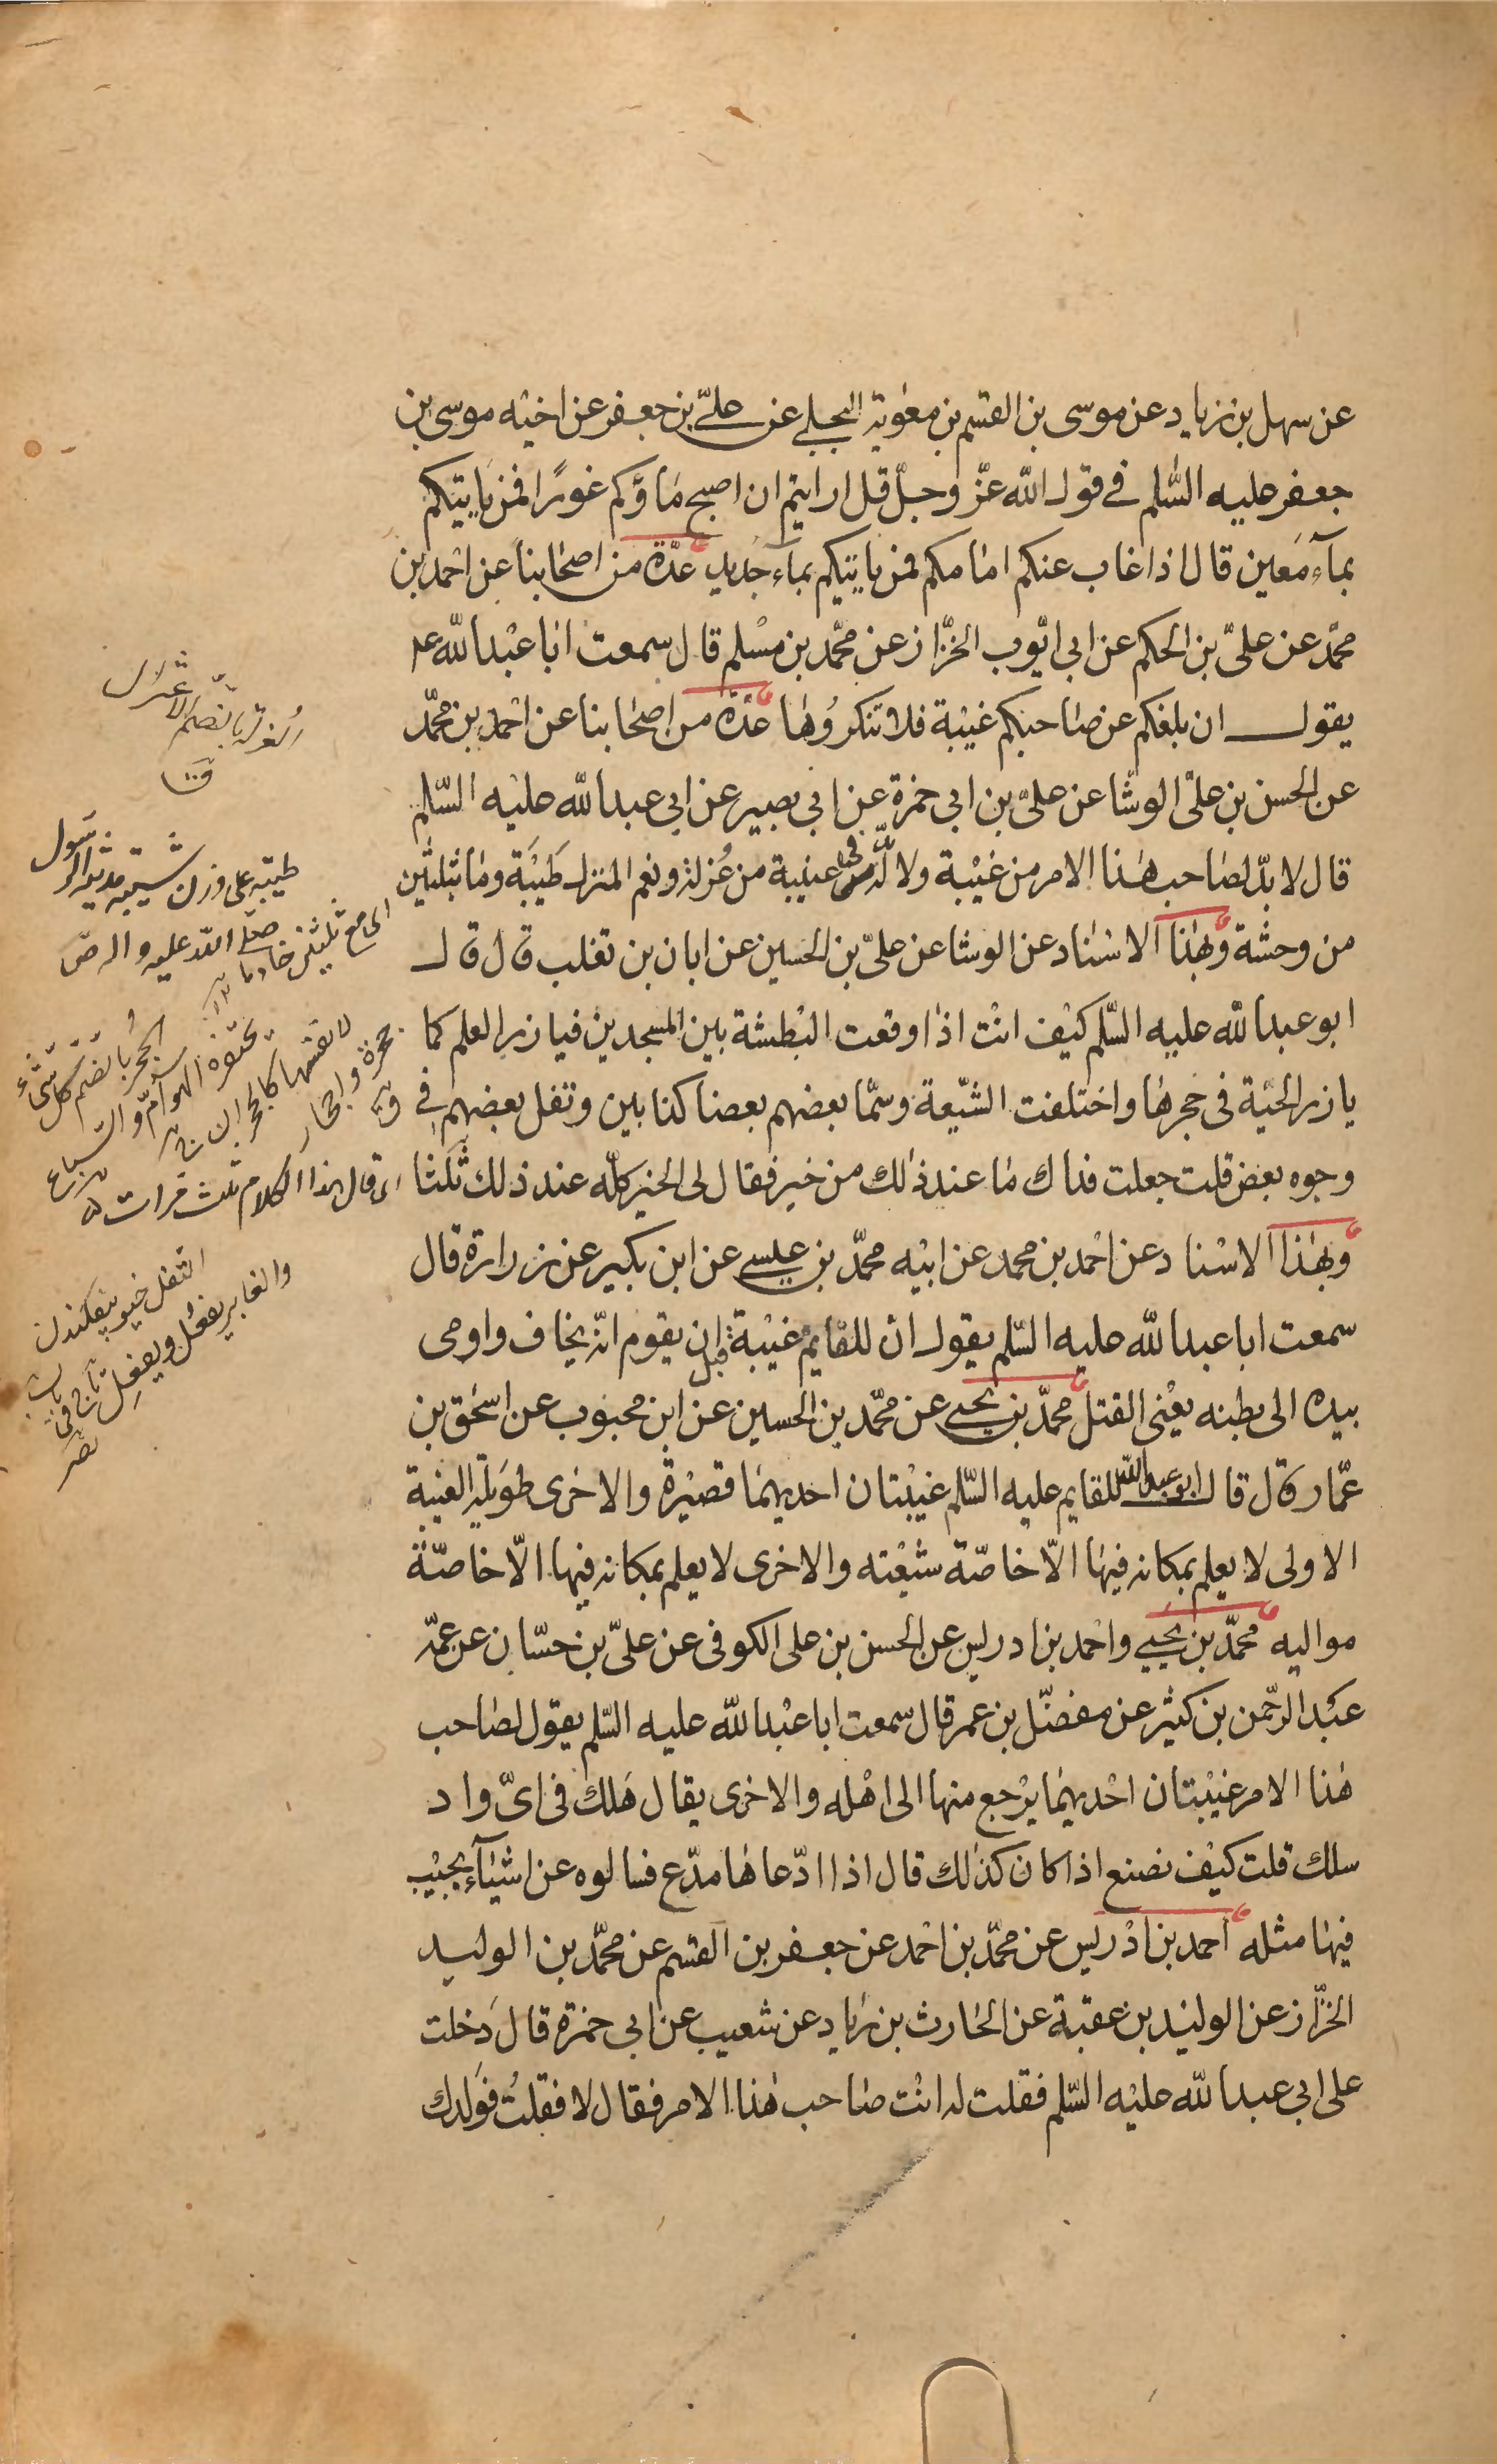 عن سهل بن زياد عن موسى بن القسم بن معوية البجلي عن علي بن جعفر عن اخيه موسى بن
جعفر عليه السّلم في قول الله عزّ وجلّ قل ارايتم ان اصبح ماؤكم غورًا فمن ياتيكم
بمآء مَعين قال اذا غاب عنكم امامكم فمن ياتيكم بماء جديد عدّة من اصحابنا عن احمد بن
محمّد عن علىّ بن الحكم عن ابي ايّوب الخزّاز عن محمّد بن مسْلم قال سمعت ابا عبد الله عم
يقول ان بلغكم عن صاحبكم غيْبة فلا تنكروُها عدّة من اصحابنا عن احمد بن محمّد
عن الحسن بن علىّ الوشّا عن علىّ بن ابي حمزة عن ابي بصير عن ابي عبد الله عليه السّلم
قال لا بدّ لصاحب هذا الامر من غيْبة ولا بدّ له فى غيبة من عُزلة ونعم المنزل طَيْبَة وما بثلثين
من وحشة وبهذا الاسناد عن الوشا عن علىّ بن الحسين عن ابان بن تغلب قال قال
ابو عبد الله عليه السّلم كيْف انْت اذا وقعت البْطشة بين المسجدين فيا زر العلم كما
يا زر الحيّة في جحرها واختلفت الشّيعة وسمّا بعضهم بعضا كذابين وتفل بعضهم في
وجوه بعض قلت جعلت فداك ما عند ذلك من خير فقال لى الخير كلّه عند ذلك ثلثا
وبهذا الاسْناد عن احْمد بن محمد عن ابيْه محمّد بن عيسى عن ابن بكير عن زرارة قال
سمعت ابا عبد الله عليه السّلم يقول انّ للقايم غيْبة قبل ان يقوم انّه يخاف واومى
بيده الى بطنه يعْني القتل محمّد بن يحيى عن محمّد بن الحسين عن ابن محبوب عن اسحٰق بن
عمّار قال قال ابو عبد الله للقايم عليه السّلم غيْبتان احديهما قصيْرة والاخرى طويلة الغيبة
الاولى لا يعلم بمكانه فيها الّا خاصّة شيْعته والاخرى لا يعلم بمكانه فيها الّا خاصّة
مواليه محمّد بن يحيى واحْمد بن ادريس عن الحسن بن على الكوفى عن علىّ بن حسّان عن عمّه
عبْد الرحْمن بن كثيْر عن مفضّل بن عمر قال سمعت ابا عبْد الله عليه السّلم يقول لصاحب
هذا الامر غيْبتان احْديهما يرْجع منها الى اهْله والاخرى يقال هَلك في اىّ واد
سلك قلت كيْف نصنع اذا كان كذلك قال اذا ادّعاها مدّع فسالوه عن اشيآء يجيْب
فيها مثله احمد بن ادْريس عن محمّد بن احْمد عن جعفر بن القسم عن محمّد بن الوليد
الخزّاز عن الوليْد بن عقبة عن الحارث بن زياد عن شعيب عن ابي حمزة قال دَخلت
على ابي عبد الله عليْه السّلم فقلت له انْت صاحب هذا الامر فقال لا فقلت فوَلدك
العزلة بالضم الاعتزال
طيبة على وزن شيبة مدينة الرسول
صلى الله عليه واله
اى مع ثلثين خادما
الجحر بالضم كل شىء
تحتفره الهوام والسباع
لانفسها كالجحران ج
جحرة واجحار
اى قال هذا الكلام ثلث مرات
التفل خيو بيفكندن
والغابر يفعُل ويفعِل تاج